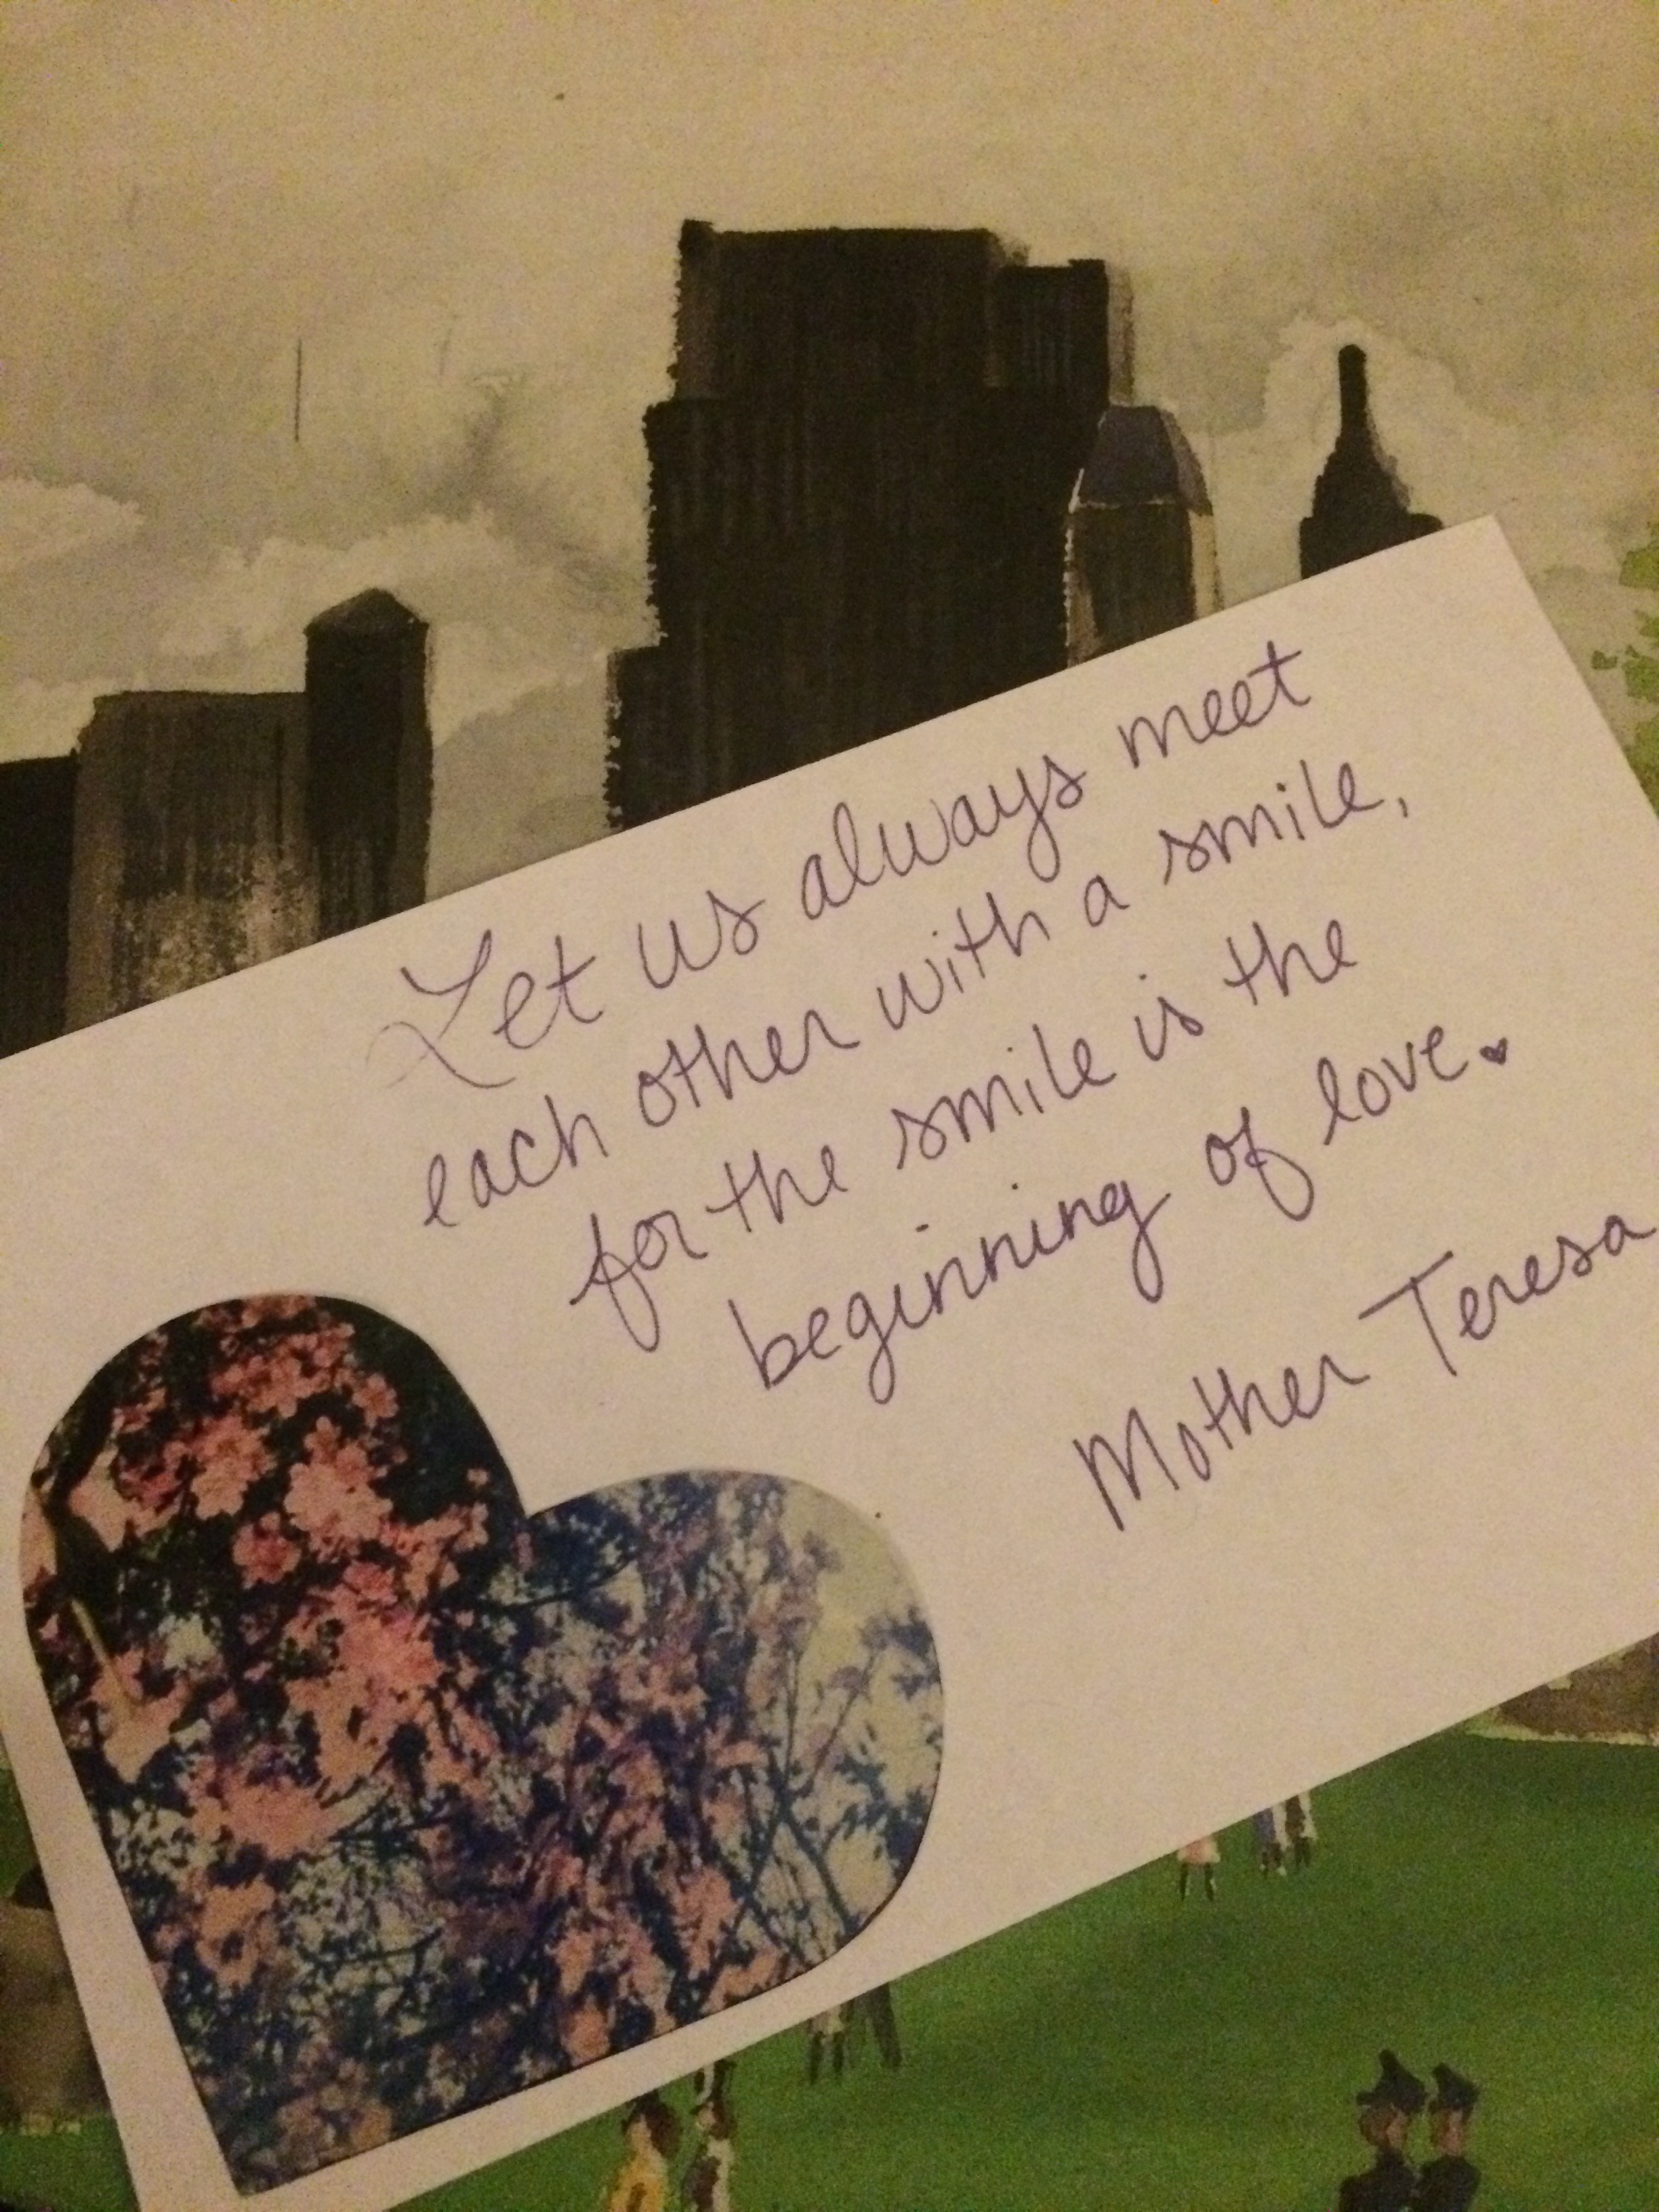 Let us always meet
each other with a smile,
for the smile is the
beginning of love.
Mother Teresa